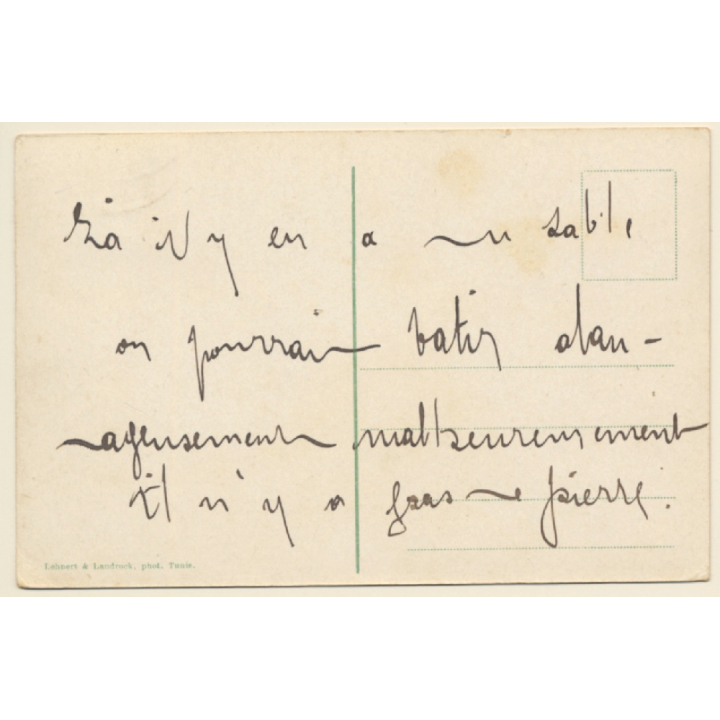 Là il y en a du sable
on pourrait batir avan-
tageusement malheureusement
il n'y a pas de pierre.
Lehnert & Landrock, phot. Tunis.